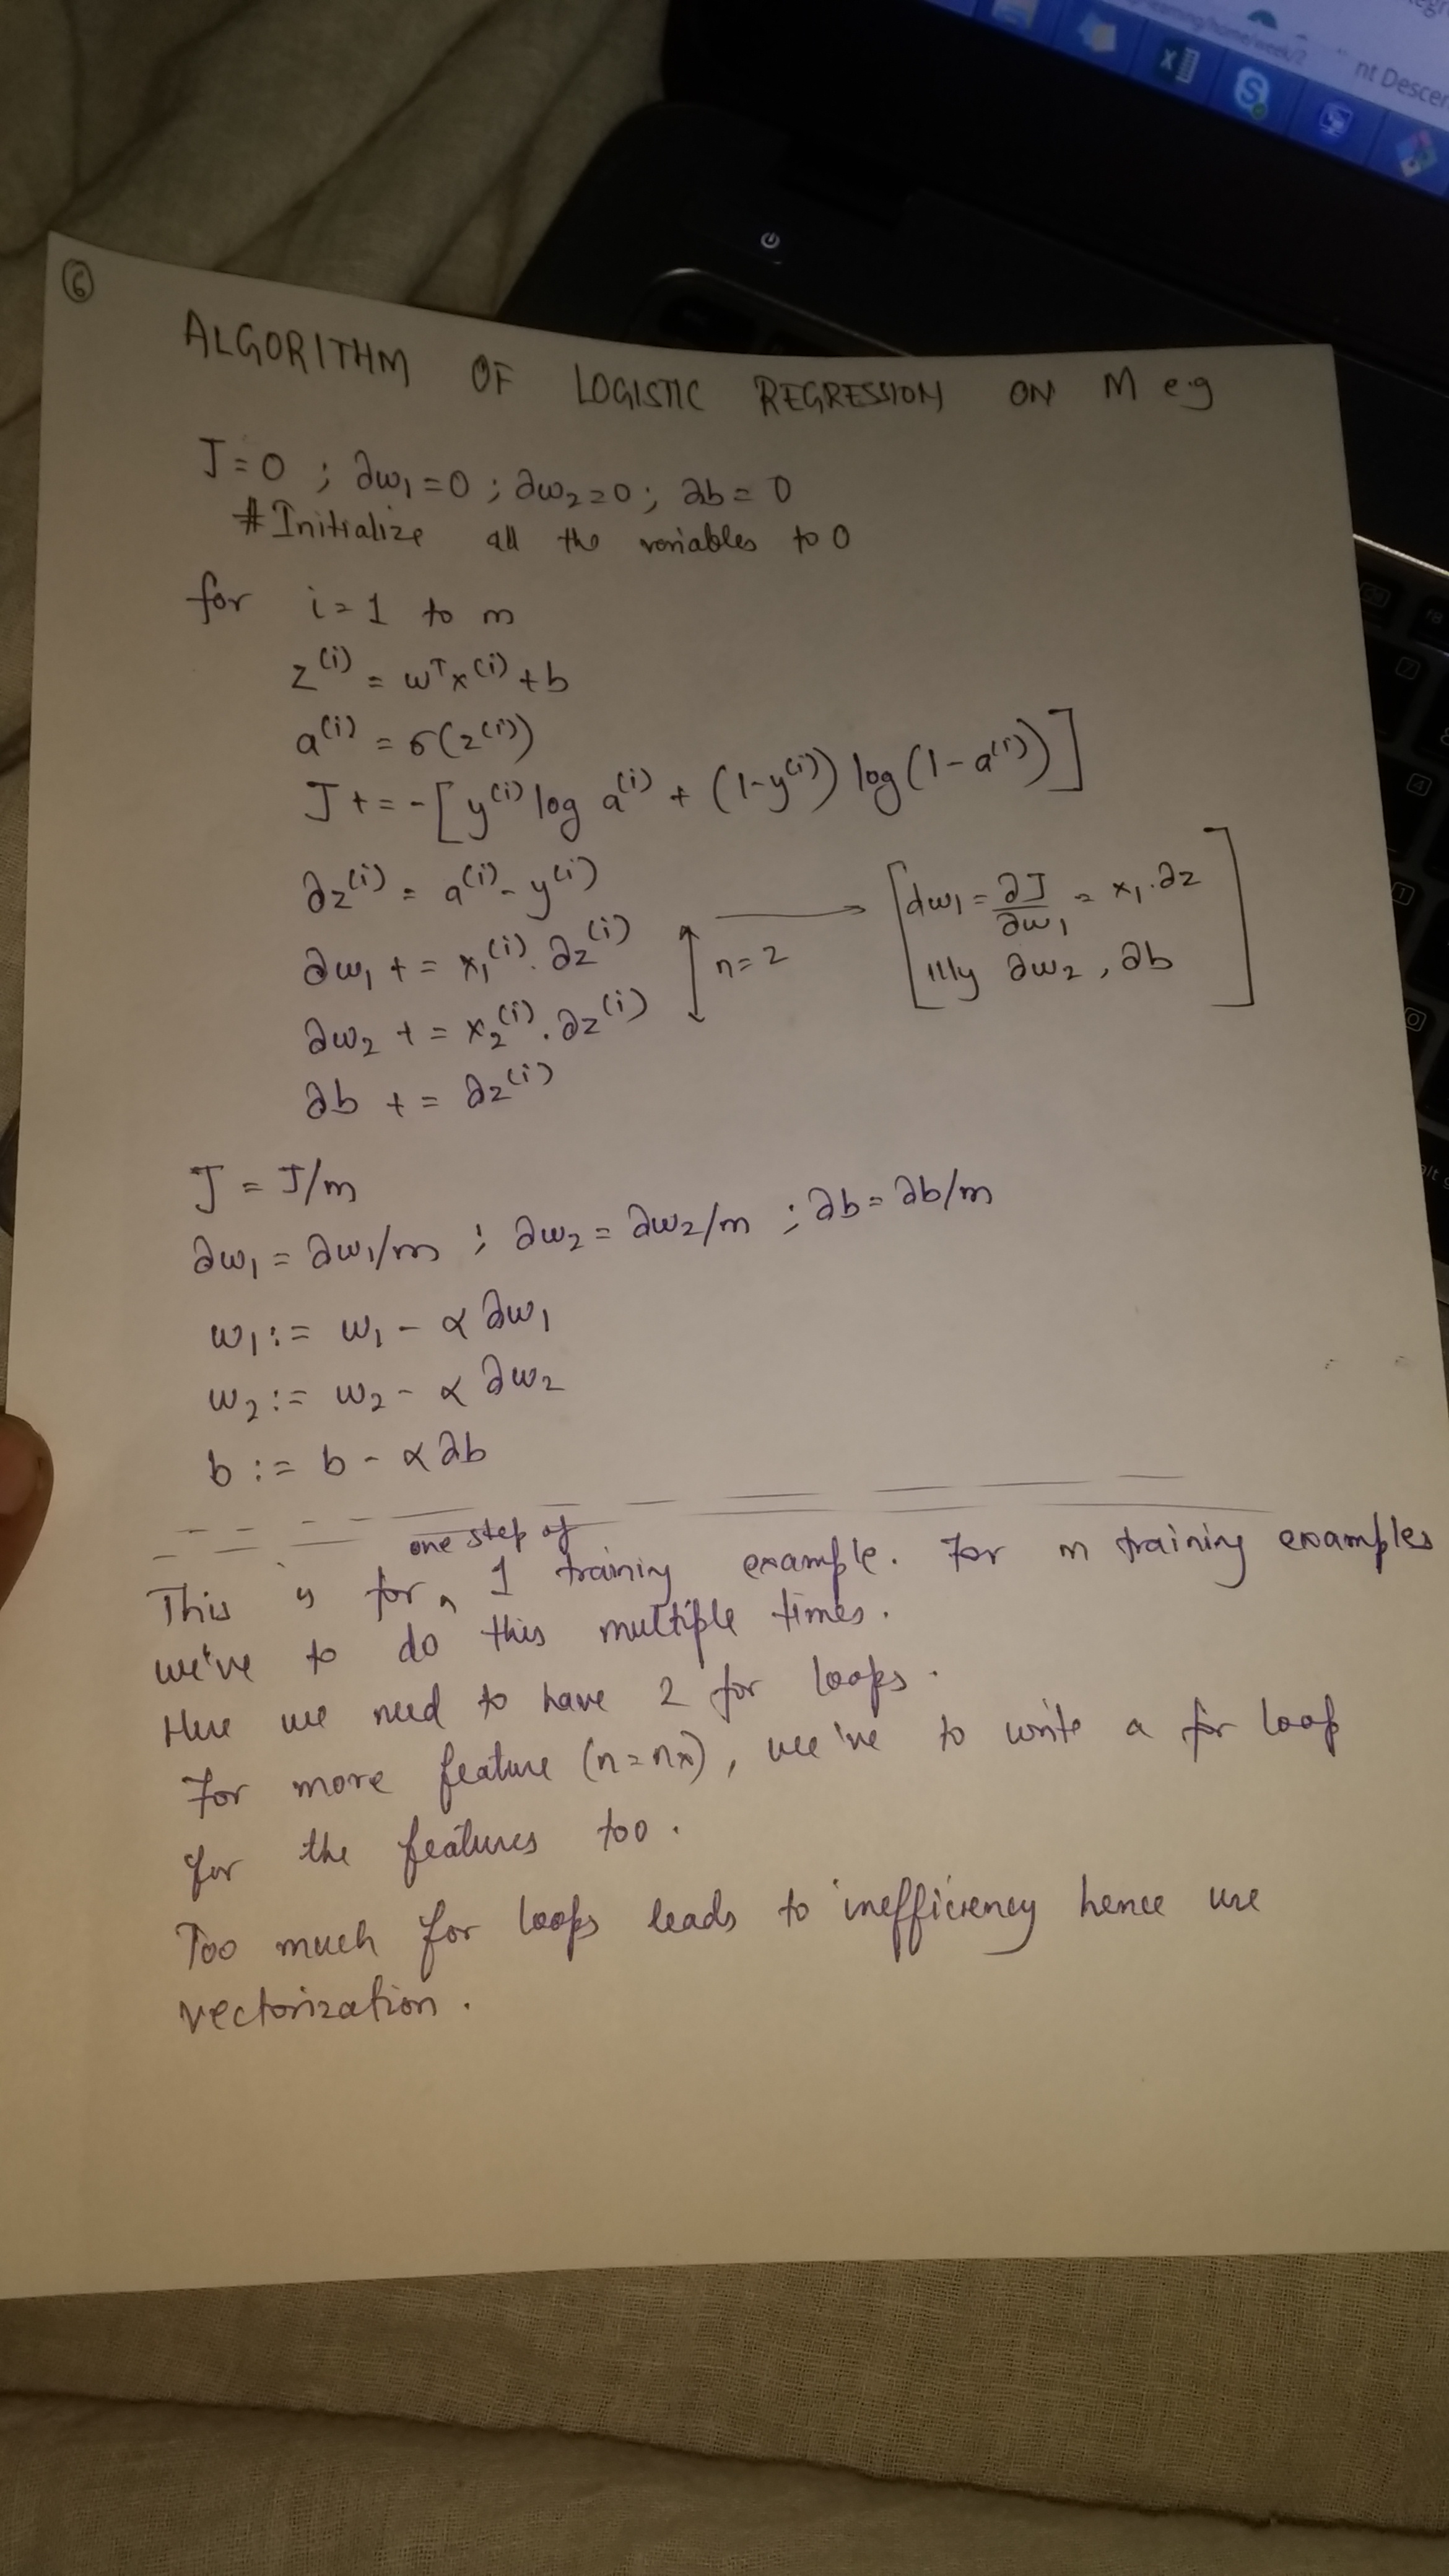 learning/home/week/2
nt Descen
6
ALGORITHM OF LOGISTIC REGRESSION ON M eg
J=0 ; ∂w₁=0 ; ∂w₂=0 ; ∂b=0
#Initialize all the variables to 0
for i=1 to m
z⁽ⁱ⁾ = wᵀx⁽ⁱ⁾+b
a⁽ⁱ⁾ = σ(z⁽ⁱ⁾)
J += -[y⁽ⁱ⁾ log a⁽ⁱ⁾ + (1-y⁽ⁱ⁾) log(1-a⁽ⁱ⁾)]
∂z⁽ⁱ⁾ = a⁽ⁱ⁾-y⁽ⁱ⁾
∂w₁ += x₁⁽ⁱ⁾.∂z⁽ⁱ⁾
∂w₂ += x₂⁽ⁱ⁾.∂z⁽ⁱ⁾
n=2 → [dw₁ = ∂J/∂w₁ = x₁.∂z
illy ∂w₂, ∂b]
∂b += ∂z⁽ⁱ⁾
J = J/m
∂w₁ = ∂w₁/m ; ∂w₂ = ∂w₂/m ; ∂b = ∂b/m
w₁ := w₁ - α ∂w₁
w₂ := w₂ - α ∂w₂
b := b - α ∂b
one step of
This is for ^ 1 training example. For m training examples
we've to do this multiple times.
Here we need to have 2 for loops.
For more feature (n=nx), we've to write a for loop
for the features too.
Too much for loops leads to inefficiency hence use
vectorization.